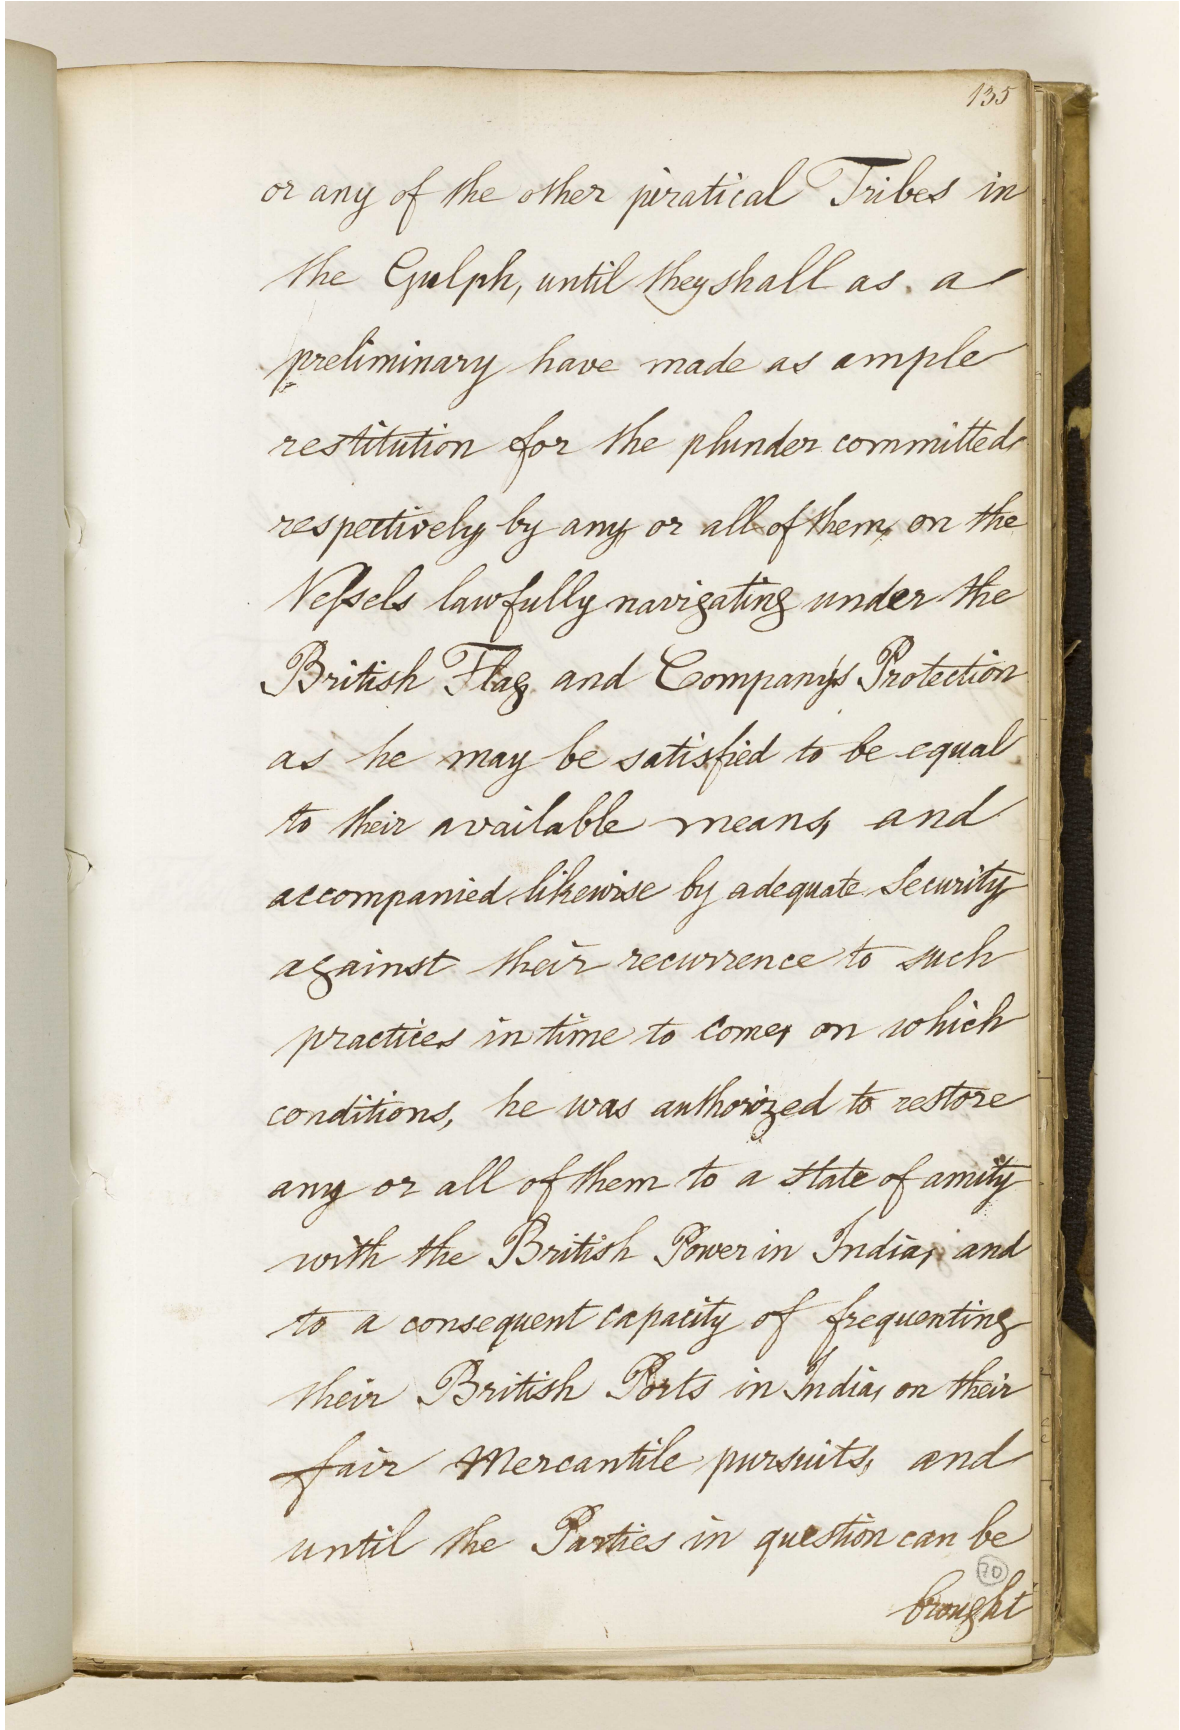 135
or any of the other piratical Tribes in
the Gulph, until they shall as a
preliminary have made as ample
restitution for the plunder committed
respectively by any or all of them, on the
Veſsels lawfully navigating under the
British Flag and Company's Protection
as he may be satisfied to be equal
to their available means, and
accompanied likewise by adequate Security
against their recurrence to such
practices in time to come, on which
conditions, he was authorized to restore
any or all of them to a state of amity
with the British Power in India, and
to a consequent capacity of frequenting
their British Ports in India, on their
fair Mercantile pursuits, and
until the Parties in question can be
70
brought